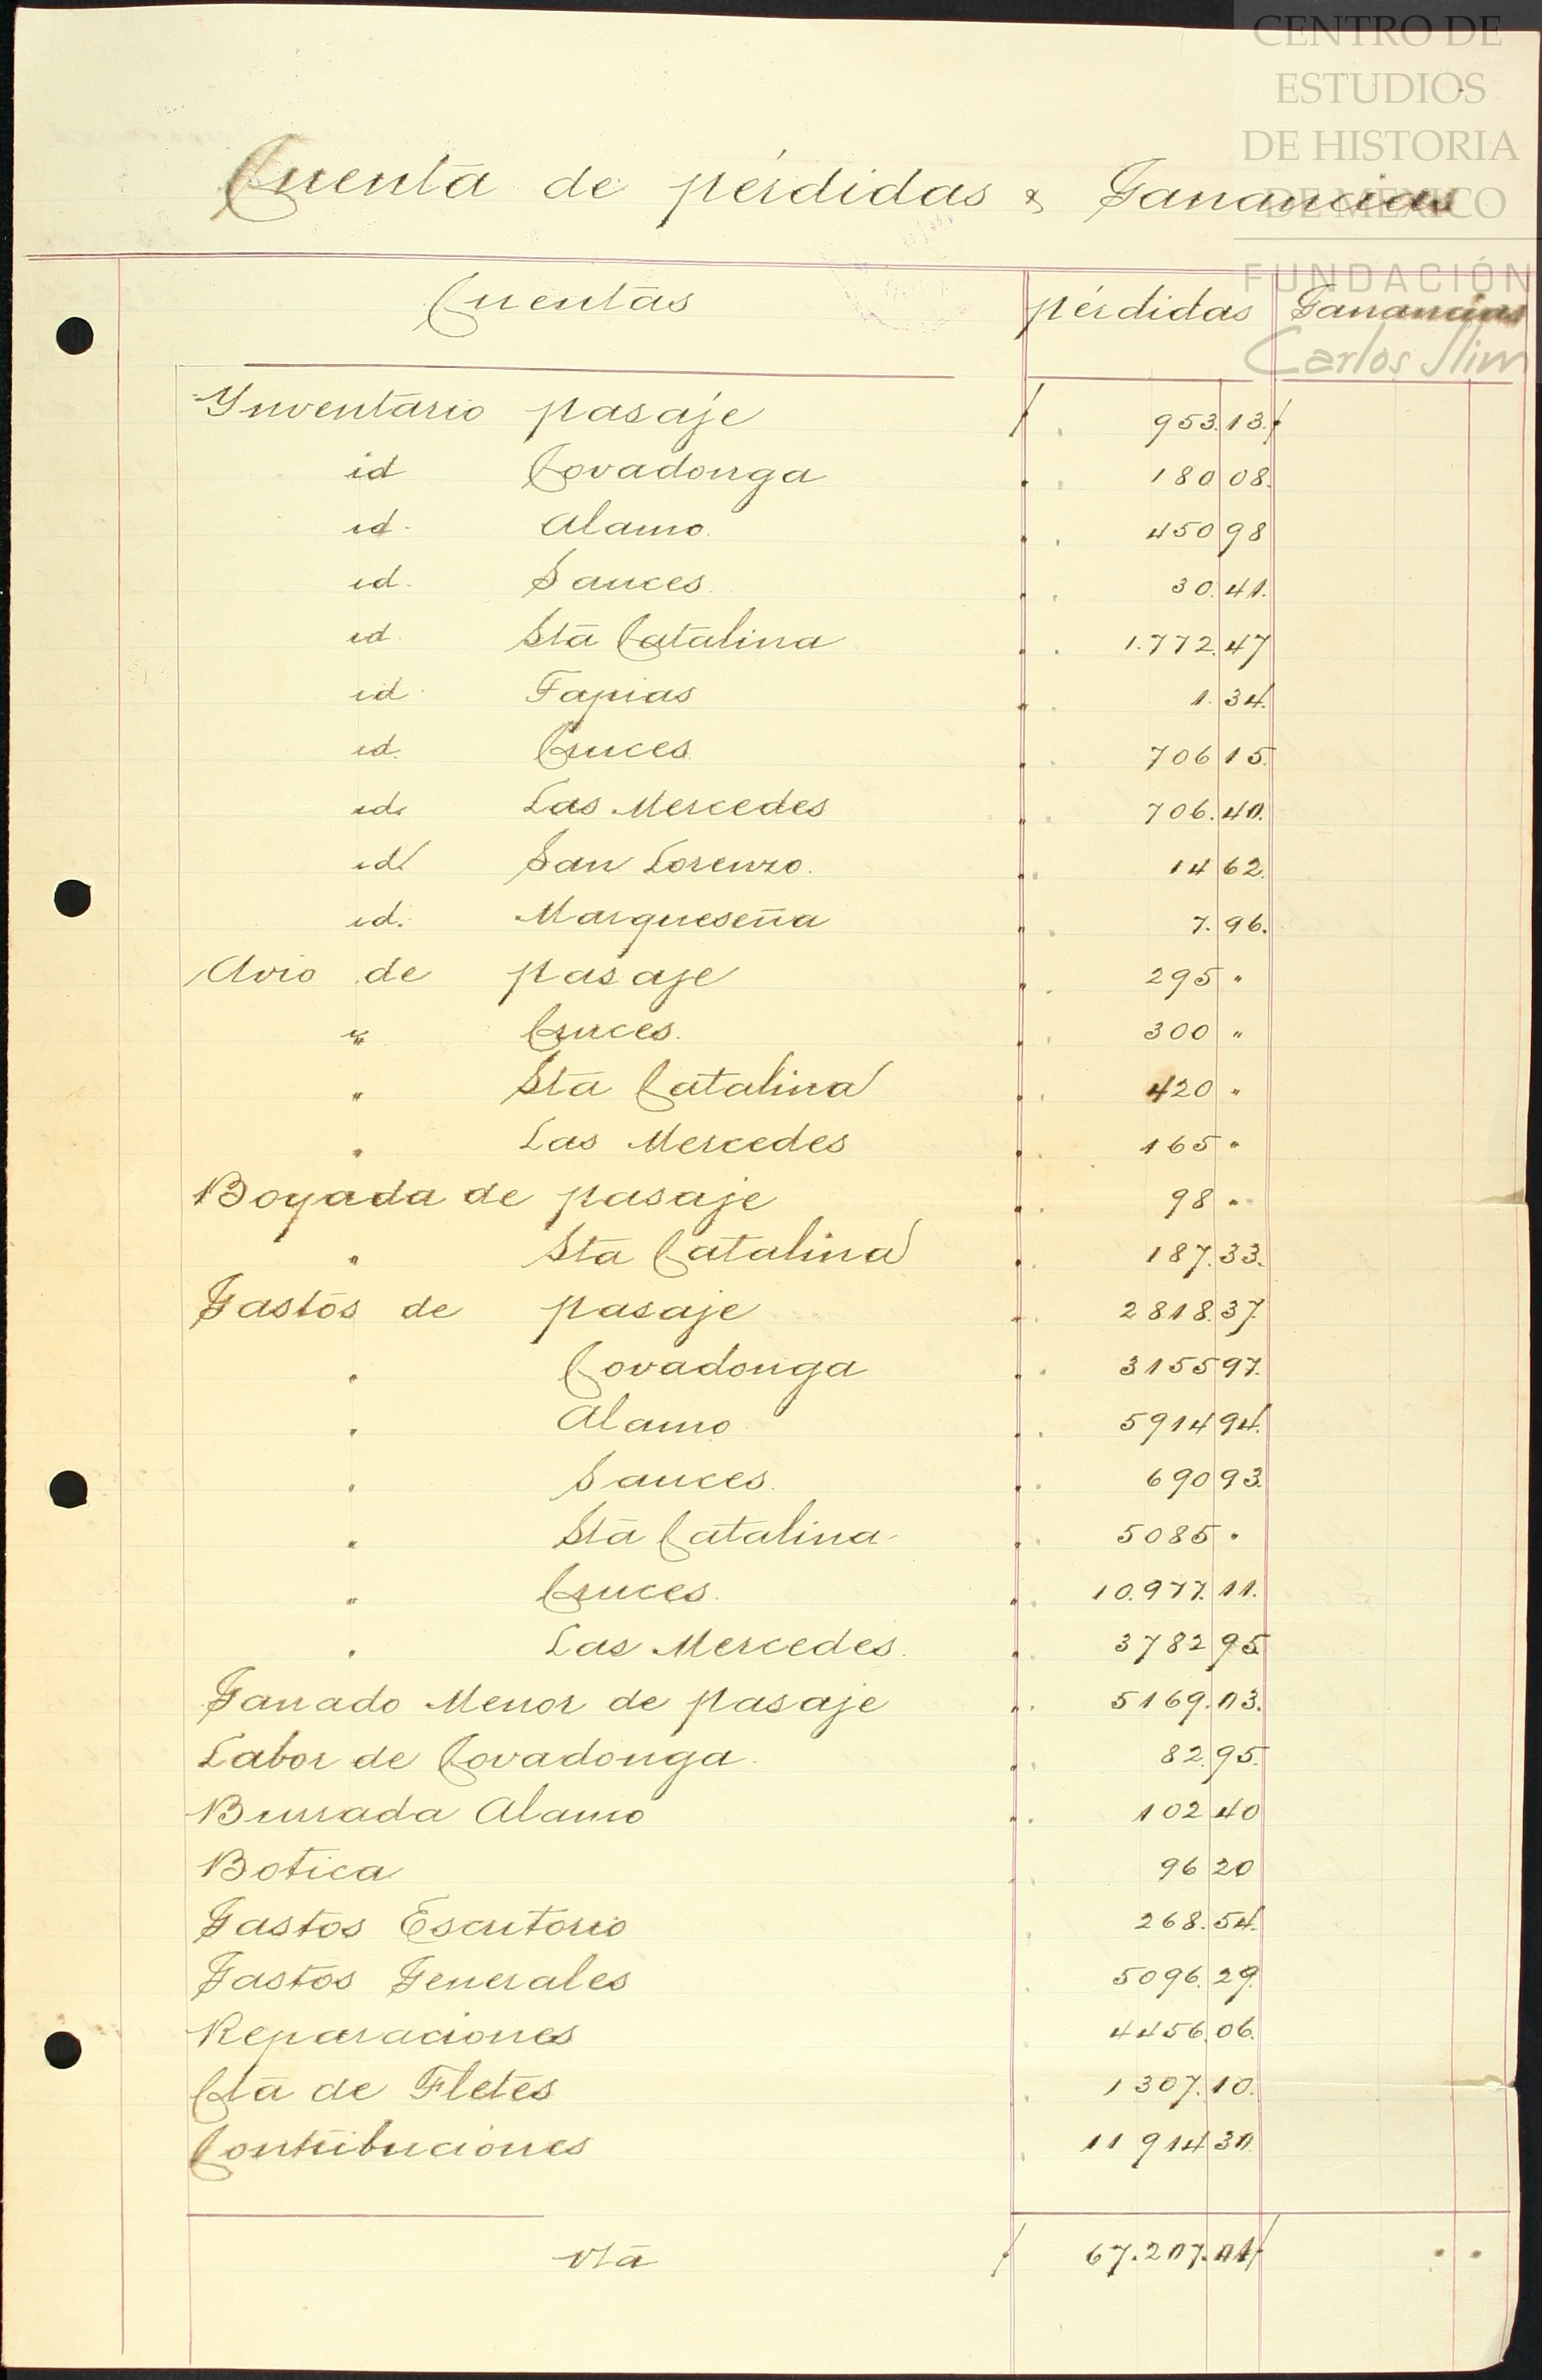 CENTRO DE
ESTUDIOS
DE HISTORIA
DE MÉXICO
FUNDACIÓN
Carlos Slim
Cuenta de pérdidas & Ganancias
Cuentas pérdidas Ganancias
Ynventario pasaje 953.13.
id Covadonga 180 08.
id. Alamo. 450 98
id. Sauces. 30.41.
id. Sta Catalina 1.772.47
id. Tapias 1.34.
id. Cruces. 706 15.
id. Las Mercedes 706.40.
id San Lorenzo. 14 62.
id. Marqueseña 7.96.
Avio de pasaje 295 "
" Cruces. 300 "
" Sta Catalina 420 "
" Las Mercedes 165 "
Boyada de pasaje 98 "
" Sta Catalina 187.33.
Gastos de pasaje 2818.37.
" Covadonga 3155 97.
" Alamo 5914 94.
" Sauces. 690 93.
" Sta Catalina 5085 "
" Cruces. 10.977.11.
" Las Mercedes. 3782 95
Ganado Menor de pasaje 5169.03.
Labor de Covadonga. 82.95.
Burrada Alamo 102 40
Botica 96 20
Gastos Escritorio 268.54.
Gastos Generales 5096.29.
Reparaciones 4456.06.
Cta de Fletes 1307.10.
Contribuciones 11 914 30.
vta 67.207.01